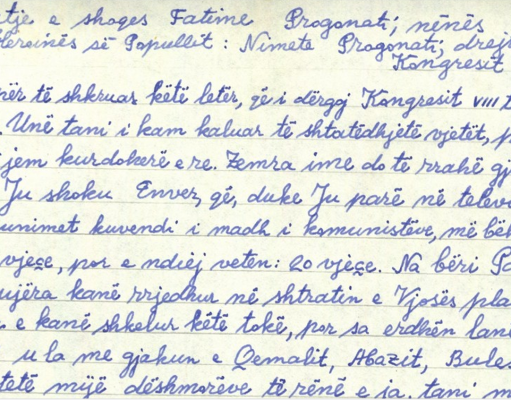 tje e shoqes Fatime Progonati, nënës
Heroinës së Popullit: Nimete Progonati, drej
Kongresit
për të shkruar këtë letër, që i dërgoj Kongresit VIII
. Unë tani i kam kaluar të shtatëdhjetë vjetët, p
jem kurdoherë e re. Zemra ime do të rrahë gj
Ju shoku Enver, që, duke Ju parë në telev
punimet kuvendi i madh i komunistëve, më bëh
vjeçe, por e ndiej veten: 20 vjeçe. Na bëri Pa
ujëra kanë rrjedhur në shtratin e Vjosës pla
e kanë shkelur këtë tokë, por sa erdhën lanë
u la me gjakun e Qemalit, Abazit, Bules
tetë mijë dëshmorëve të rënë e ja. tani m